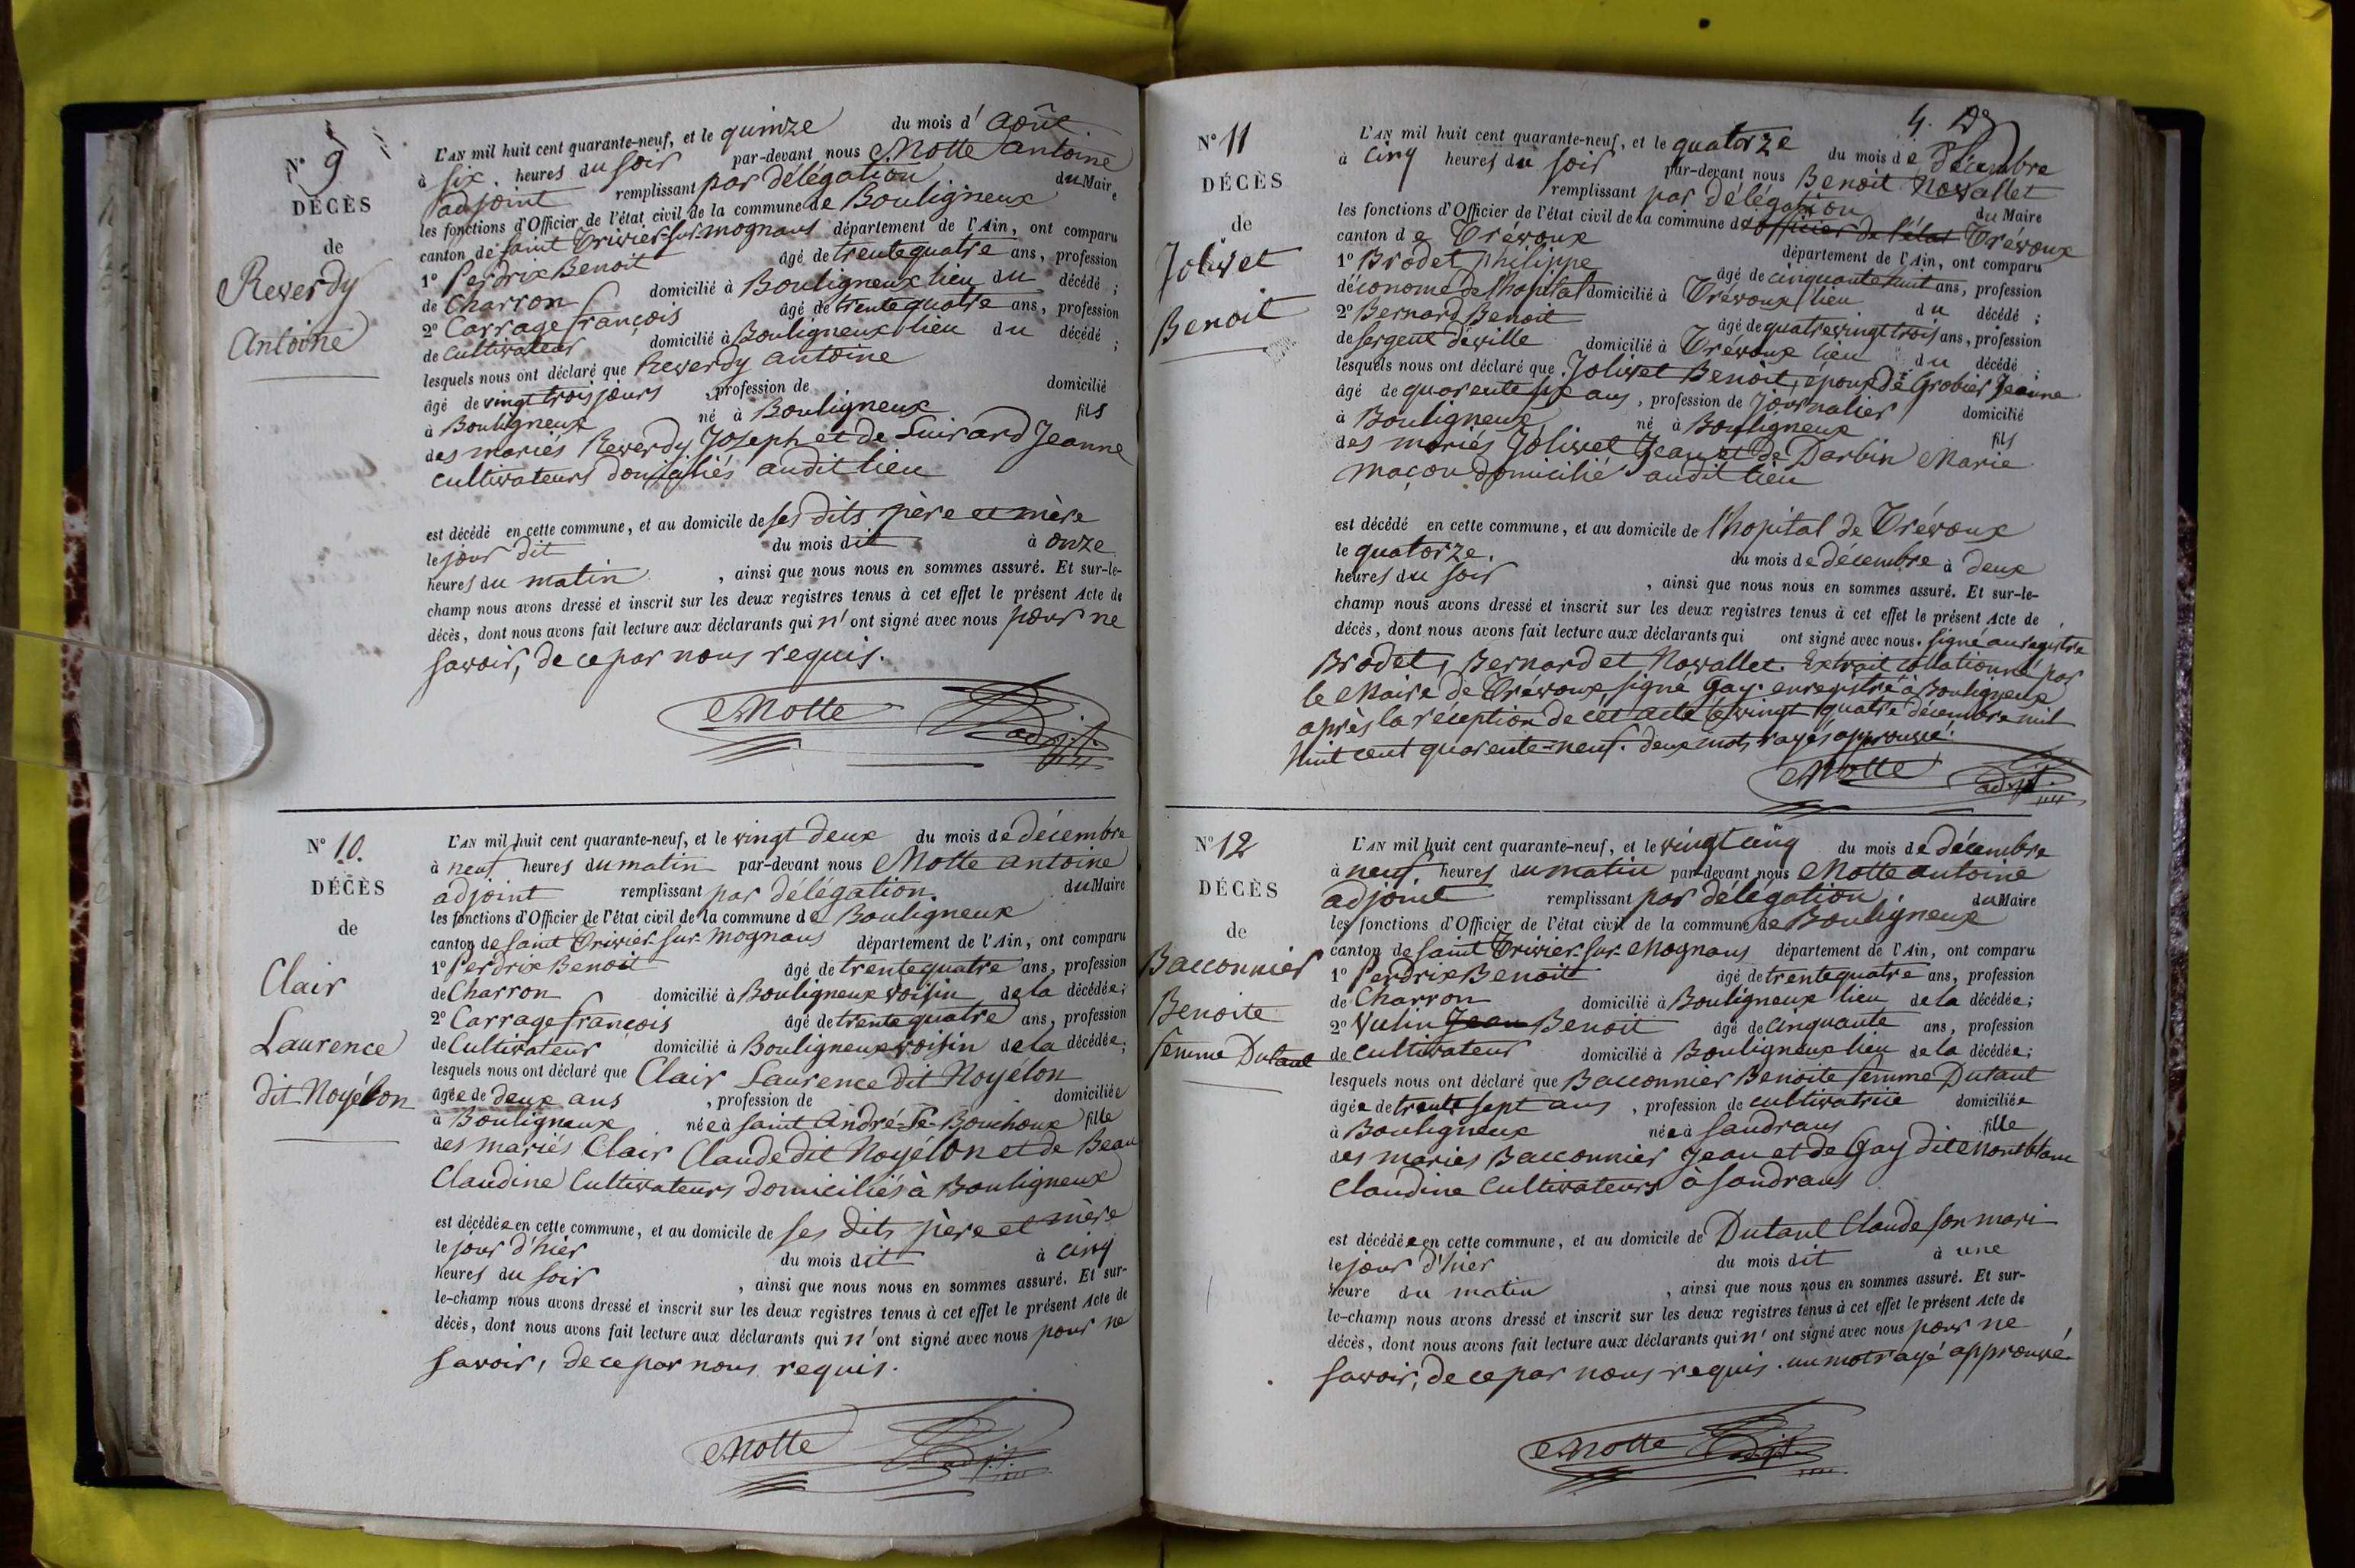 N° 9
DÉCÈS
de
Reverdy
Antoine
L'AN mil huit cent quarante-neuf, et le quinze du mois d' Août
à six heures du soir par-devant nous Motte Antoine
adjoint remplissant par délégation du Maire
les fonctions d'Officier de l'état civil de la commune de Bouligneux
canton de saint Trivier-sur-mognans département de l'Ain, ont comparu
1° Perdrix Benoit âgé de trente quatre ans, profession
de Charron domicilié à Bouligneux lieu du décédé ;
2° Carrage françois âgé de trente quatre ans, profession
de Cultivateur domicilié à Bouligneux lieu du décédé ;
lesquels nous ont déclaré que Reverdy Antoine
âgé de vingt trois jours , profession de domicilié
à Bouligneux né à Bouligneux fils
des mariés Reverdy Joseph et de Luirard Jeanne
cultivateurs domiciliés audit lieu
est décédé en cette commune, et au domicile de ses dits père et mère
le jour dit du mois dit à onze
heures du matin , ainsi que nous nous en sommes assuré. Et sur-le-
champ nous avons dressé et inscrit sur les deux registres tenus à cet effet le présent Acte de
décès, dont nous avons fait lecture aux déclarants qui n' ont signé avec nous pour ne
savoir, de ce par nous requis.
Motte adjt
N° 10.
DÉCÈS
de
Clair
Laurence
dit Noyélon
L'AN mil huit cent quarante-neuf, et le vingt deux du mois de décembre
à neuf heures du matin par-devant nous Motte antoine
adjoint remplissant par délégation. du Maire
les fonctions d'Officier de l'état civil de la commune de Bouligneux
canton de saint Trivier-sur-mognans département de l'Ain, ont comparu
1° Perdrix Benoit âgé de trente quatre ans, profession
de Charron domicilié à Bouligneux voisin de la décédée;
2° Carrage françois âgé de trente quatre ans, profession
de Cultivateur domicilié à Bouligneux voisin de la décédée;
lesquels nous ont déclaré que Clair Laurence dit Noyélon
âgée de deux ans , profession de domiciliée
à Bouligneux née à saint André-le-Bouchoux fille
des mariés Clair Claude dit Noyélon et de Beau
Claudine Cultivateurs domiciliés à Bouligneux
est décédée en cette commune, et au domicile de ses dits père et mère
le jour d'hier du mois dit à cinq
heures du soir , ainsi que nous nous en sommes assuré. Et sur-
le-champ nous avons dressé et inscrit sur les deux registres tenus à cet effet le présent Acte de
décès, dont nous avons fait lecture aux déclarants qui n' ont signé avec nous pour ne
savoir, de ce par nous requis.
Motte adjt
4.
N° 11
DÉCÈS
de
Jolivet
Benoit
L'AN mil huit cent quarante-neuf, et le quatorze du mois de décembre
à cinq heures du soir par-devant nous Benoit Novallet
remplissant par délégation du Maire
les fonctions d'Officier de l'état civil de la commune d officier de l'état Trévoux
canton de Trévoux département de l'Ain, ont comparu
1° Brodet Philippe âgé de cinquante huit ans, profession
d'économe de l'hopital domicilié à Trévoux lieu du décédé ;
2° Bernard Benoit âgé de quatrevingt trois ans, profession
de sergent de ville domicilié à Trévoux lieu du décédé ;
lesquels nous ont déclaré que Jolivet Benoit, époux de Grobier Jeanne
âgé de quarente six ans , profession de Journalier domicilié
à Bouligneux né à Bouligneux fils
des mariés Jolivet Jean et de Darbin Marie
maçon domicilié audit lieu
est décédé en cette commune, et au domicile de l'hopital de Trévoux
le quatorze. du mois de décembre à deux
heures du soir , ainsi que nous nous en sommes assuré. Et sur-le-
champ nous avons dressé et inscrit sur les deux registres tenus à cet effet le présent Acte de
décès, dont nous avons fait lecture aux déclarants qui ont signé avec nous. signé au registre
Brodet, Bernard et Novallet. Extrait collationné par
le Maire de Trévoux signé Gay. enregistré à Bouligneux
après la réception de cet acte le vingt quatre décembre mil
huit cent quarente-neuf. deux mots rayés approuvé.
Motte adjt
N° 12
DÉCÈS
de
Bacconnier
Benoite
femme Dutant
L'AN mil huit cent quarante-neuf, et le vingt cinq du mois de décembre
à neuf. heures du matin par-devant nous Motte antoine
adjoint remplissant par délégation. du Maire
les fonctions d'Officier de l'état civil de la commune de Bouligneux
canton de saint Trivier-sur-Mognans département de l'Ain, ont comparu
1° Perdrix Benoit âgé de trente quatre ans, profession
de Charron domicilié à Bouligneux lieu de la décédée;
2° Vulin Jean Benoit âgé de cinquante ans, profession
de cultivateur domicilié à Bouligneux lieu de la décédée;
lesquels nous ont déclaré que Bacconnier Benoite femme Dutant
âgée de trente sept ans , profession de cultivatrice domiciliée
à Bouligneux née à Sandrans fille
des mariés Bacconnier Jean et de Gay dite Montblanc
Claudine Cultivateurs à Sandrans
est décédée en cette commune, et au domicile de Dutant Claude son mari
le jour d'hier du mois dit à une
heure du matin , ainsi que nous nous en sommes assuré. Et sur-
le-champ nous avons dressé et inscrit sur les deux registres tenus à cet effet le présent Acte de
décès, dont nous avons fait lecture aux déclarants qui n' ont signé avec nous pour ne
savoir, de ce par nous requis. un mot rayé approuvé.
Motte adjt